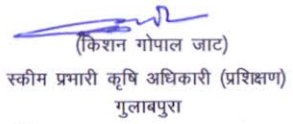 (किशन गोपाल जाट)
स्कीम प्रभारी कृषि अधिकारी (प्रशिक्षण)
गुलाबपुरा